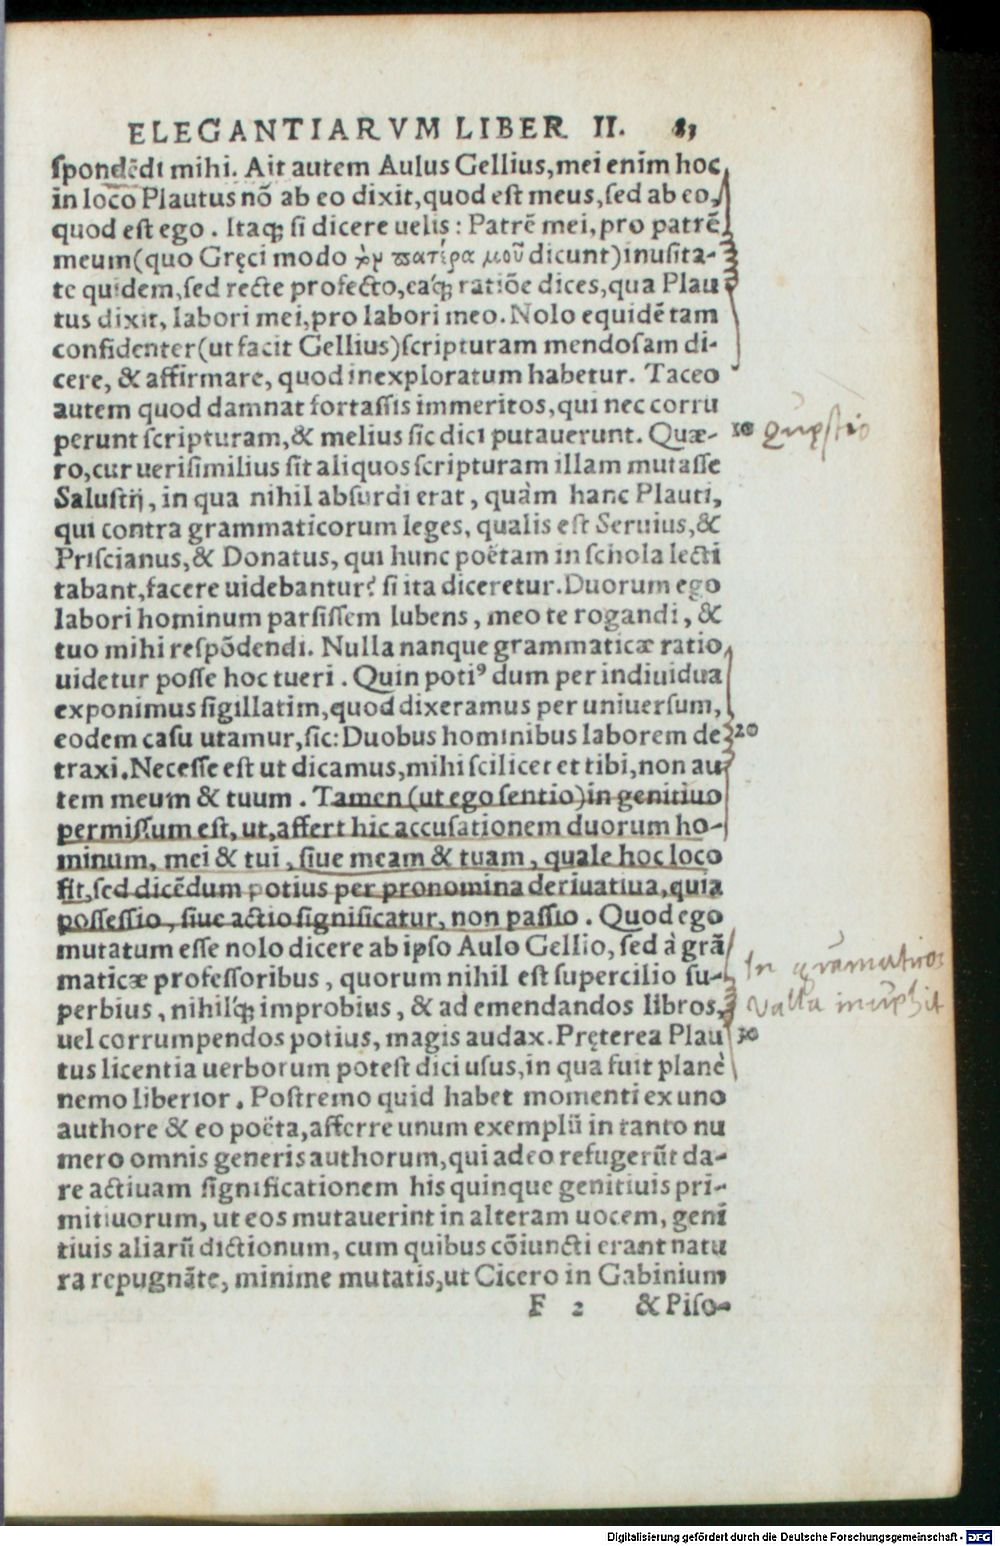 ELEGANTIARVM LIBER II. 83
spondēdi mihi. Ait autem Aulus Gellius, mei enim hoc
in loco Plautus nō ab eo dixit, quod est meus, sed ab eo,
quod est ego. Itaq; si dicere uelis: Patrē mei, pro patrē
meum (quo Gręci modo πατέρα μοῦ dicunt) inusita-
te quidem, sed recte profecto, eáq; ratiōe dices, qua Plau
tus dixit, labori mei, pro labori meo. Nolo equidē tam
confidenter (ut facit Gellius) scripturam mendosam di-
cere, & affirmare, quod inexploratum habetur. Taceo
autem quod damnat fortassis immeritos, qui nec corru
perunt scripturam, & melius sic dici putauerunt. Quæ- 10 quęstio
ro, cur uerisimilius sit aliquos scripturam illam mutasse
Salustij, in qua nihil absurdi erat, quàm hanc Plauti,
qui contra grammaticorum leges, qualis est Seruius, &
Priscianus, & Donatus, qui hunc poëtam in schola lecti
tabant, facere uidebantur? si ita diceretur. Duorum ego
labori hominum parsissem lubens, meo te rogandi, &
tuo mihi respōdendi. Nulla nanque grammaticæ ratio
uidetur posse hoc tueri. Quin potiꝰ dum per indiuidua
exponimus sigillatim, quod dixeramus per uniuersum,
eodem casu utamur, sic: Duobus hominibus laborem de 20
traxi. Necesse est ut dicamus, mihi scilicet et tibi, non au
tem meum & tuum. Tamen (ut ego sentio) in genitiuo
permissum est, ut, affert hic accusationem duorum ho-
minum, mei & tui, siue meam & tuam, quale hoc loco
fit, sed dicēdum potius per pronomina deriuatiua, quia
possessio, siue actio significatur, non passio. Quod ego
mutatum esse nolo dicere ab ipso Aulo Gellio, sed à grā
maticæ professoribus, quorum nihil est supercilio su- In gramaticos
perbius, nihilq́; improbius, & ad emendandos libros, Valla inuehit
uel corrumpendos potius, magis audax. Pręterea Plau 30
tus licentia uerborum potest dici usus, in qua fuit planè
nemo liberior. Postremo quid habet momenti ex uno
authore & eo poëta, afferre unum exemplū in tanto nu
mero omnis generis authorum, qui adeo refugerūt da-
re actiuam significationem his quinque genitiuis pri-
mitiuorum, ut eos mutauerint in alteram uocem, geni
tiuis aliarū dictionum, cum quibus cōiuncti erant natu
ra repugnāte, minime mutatis, ut Cicero in Gabinium
F 2 & Piso-
Digitalisierung gefördert durch die Deutsche Forschungsgemeinschaft - DFG